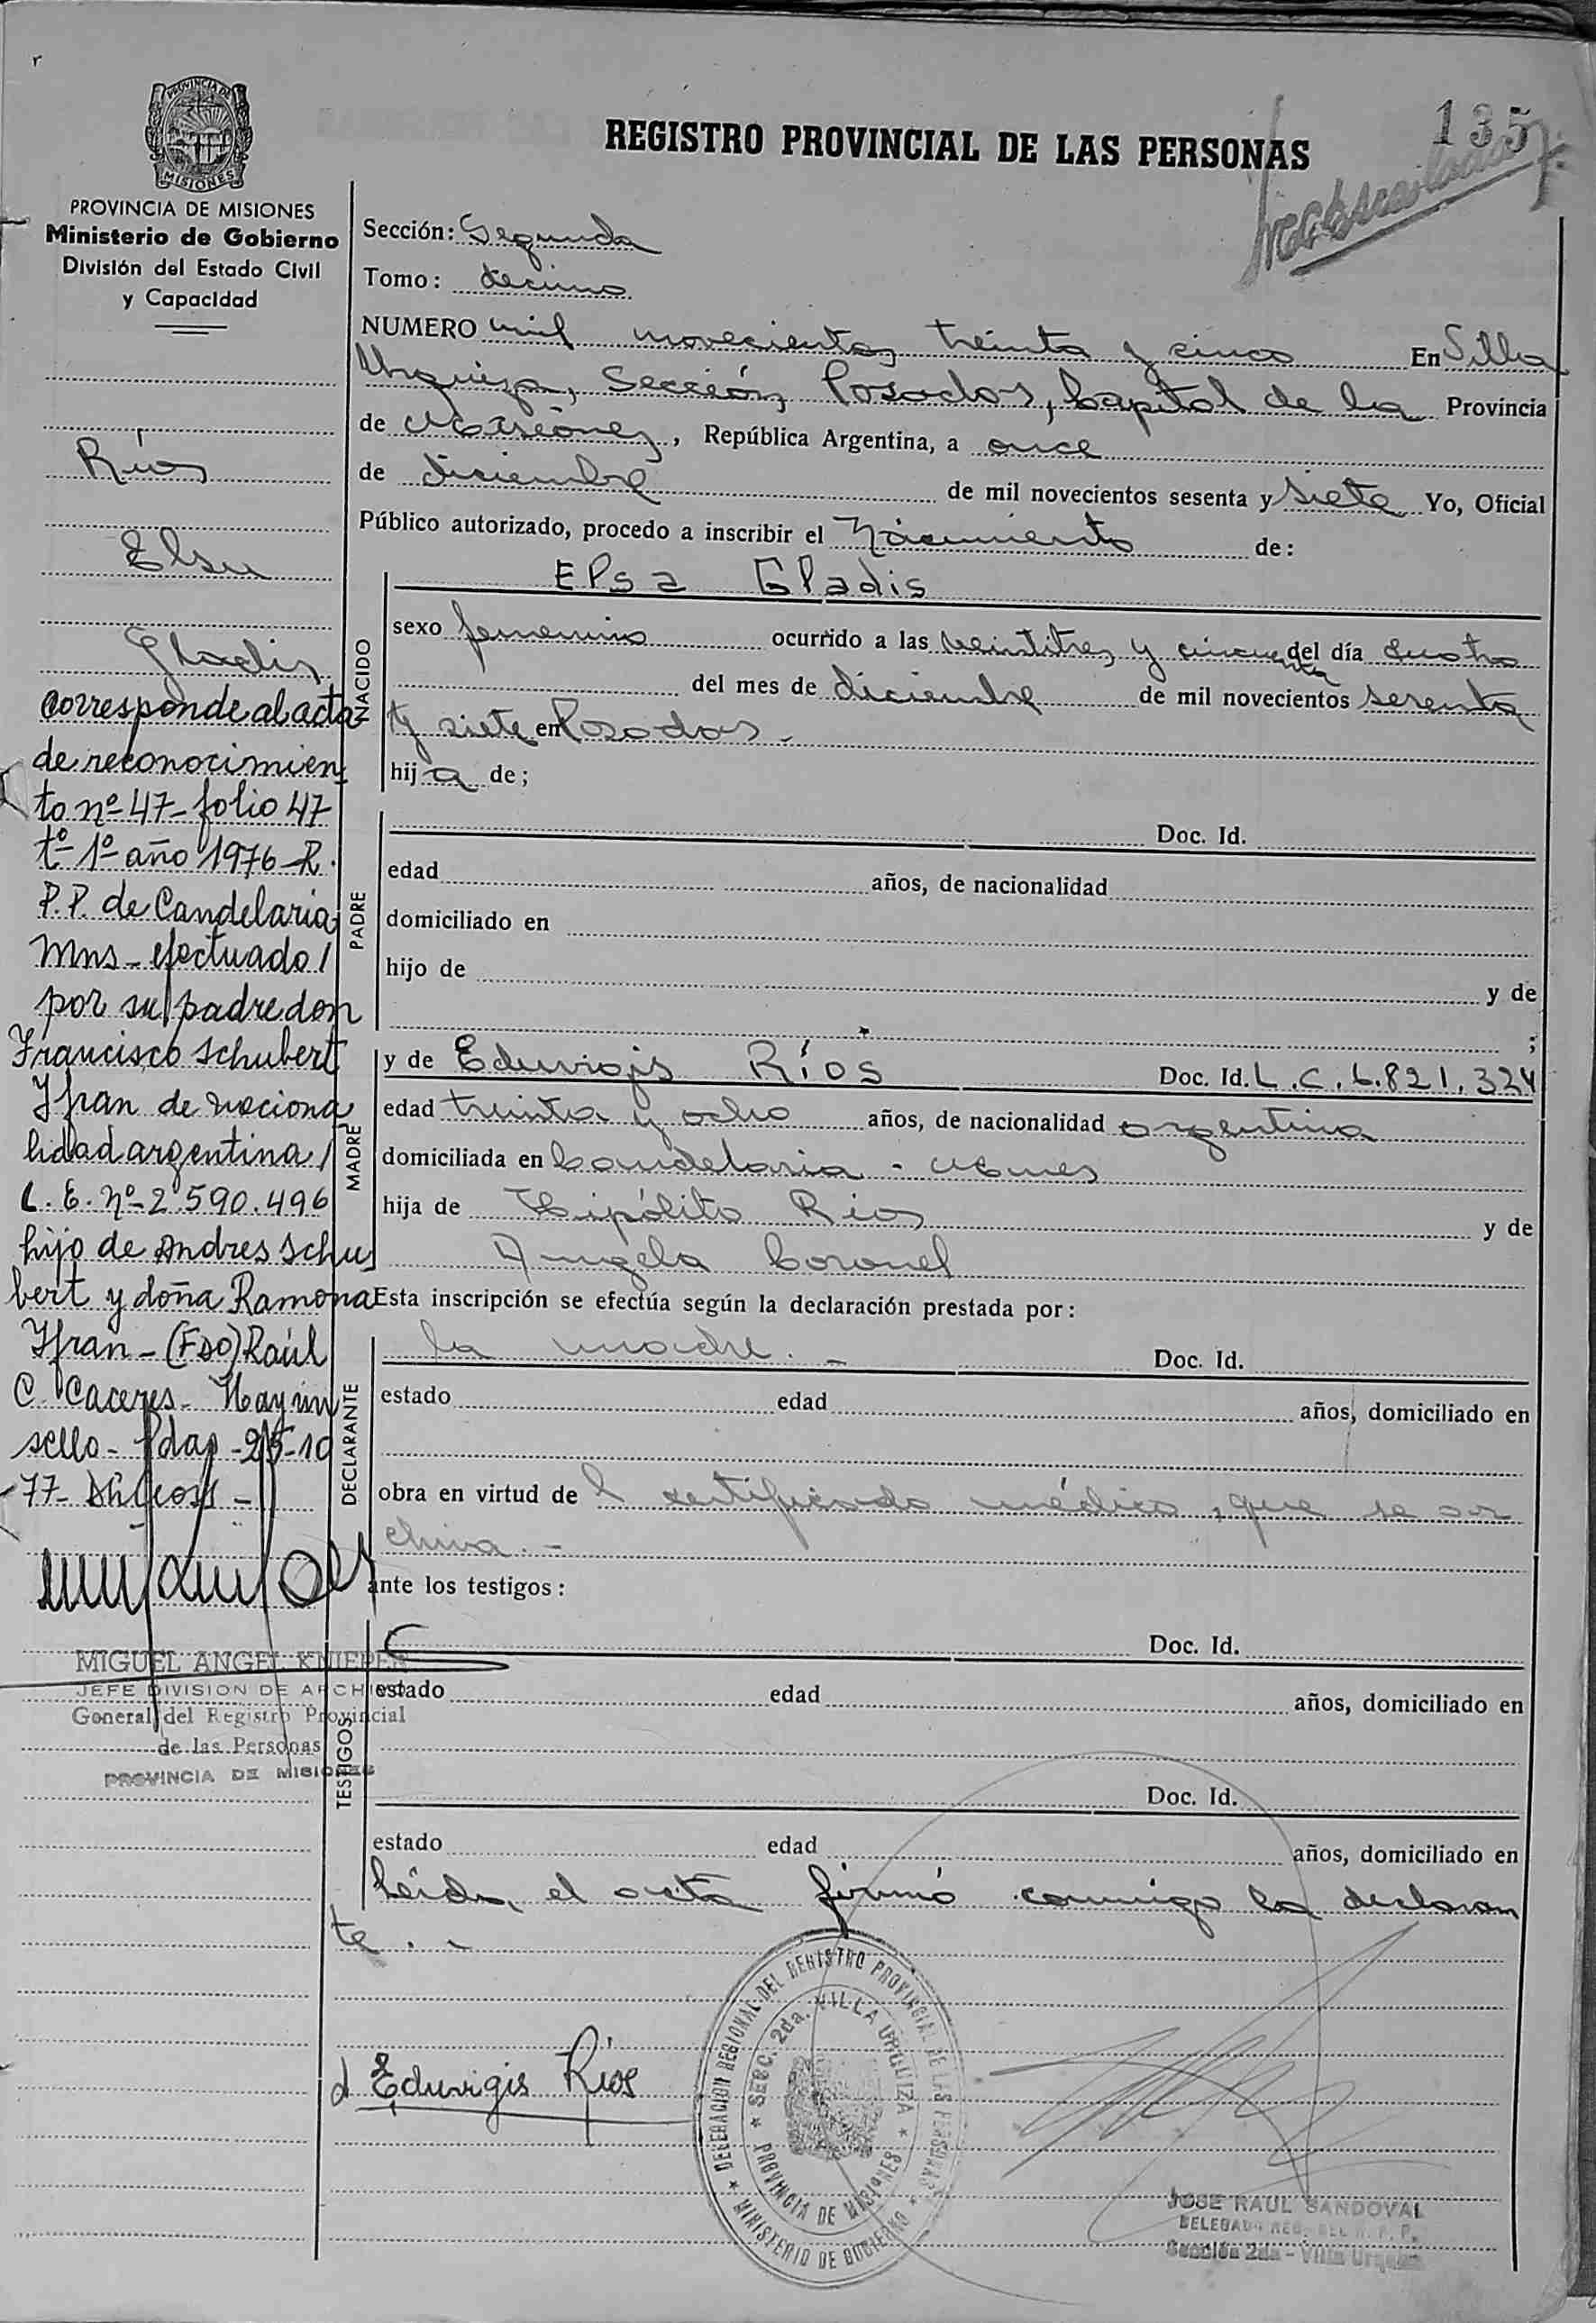 135
REGISTRO PROVINCIAL DE LAS PERSONAS
PROVINCIA DE
MISIONES
PROVINCIA DE MISIONES
Ministerio de Gobierno
División del Estado Civil
y Capacidad
Ríos
Elsa
Gladis
corresponde al acta
de reconocimien
to nº 47 - folio 47
tº 1º año 1976 - R.
P.P. de Candelaria
Mns - efectuado /
por su padre don
Francisco Schubert
Yfran de naciona
lidad argentina /
L. E. Nº 2.590.496
hijo de Andres Schu
bert y doña Ramona
Yfran - (FDO) Raúl
C. Caceres - Hay un
sello - Pdas - 25-10
-77-
MIGUEL ANGEL KNIEPER
JEFE DIVISION DE ARCHIVO
General del Registro Provincial
de las Personas
PROVINCIA DE MISIONES
Sección: Segunda
Tomo: decimo
NUMERO mil novecientos treinta y cinco En Villa
Urquiza, Sección Posadas, Capital de la Provincia
de Misiones, República Argentina, a once
de diciembre de mil novecientos sesenta y siete Yo, Oficial
Público autorizado, procedo a inscribir el Nacimiento de:
NACIDO
Elsa Gladis
sexo femenino ocurrido a las veintitres y cincuenta del día cuatro
del mes de diciembre de mil novecientos sesenta
y siete en Posadas.-
hij a de;
PADRE
Doc. Id.
edad años, de nacionalidad
domiciliado en
hijo de y de
;
MADRE
y de Eduvigis Ríos Doc. Id. L.C. 6.821.324
edad treinta y ocho años, de nacionalidad argentina
domiciliada en Candelaria - Mnes
hija de Hipólito Rios y de
Angela Coronel
Esta inscripción se efectúa según la declaración prestada por:
DECLARANTE
la madre.- Doc. Id.
estado edad años, domiciliado en
obra en virtud de l certificado médico, que se ar
chiva.-
ante los testigos:
TESTIGOS
Doc. Id.
estado edad años, domiciliado en
Doc. Id.
estado edad años, domiciliado en
Leída el acta firmó conmigo la declaran
te.-
Eduvigis Ríos
DELEGACION REGIONAL DEL REGISTRO PROVINCIAL DE LAS PERSONAS
MINISTERIO DE GOBIERNO
SECC. 2da. VILLA URQUIZA
PROVINCIA DE MISIONES
JOSE RAUL SANDOVAL
DELEGADO REG. DEL R. P. P.
Sección 2da - Villa Urquiza